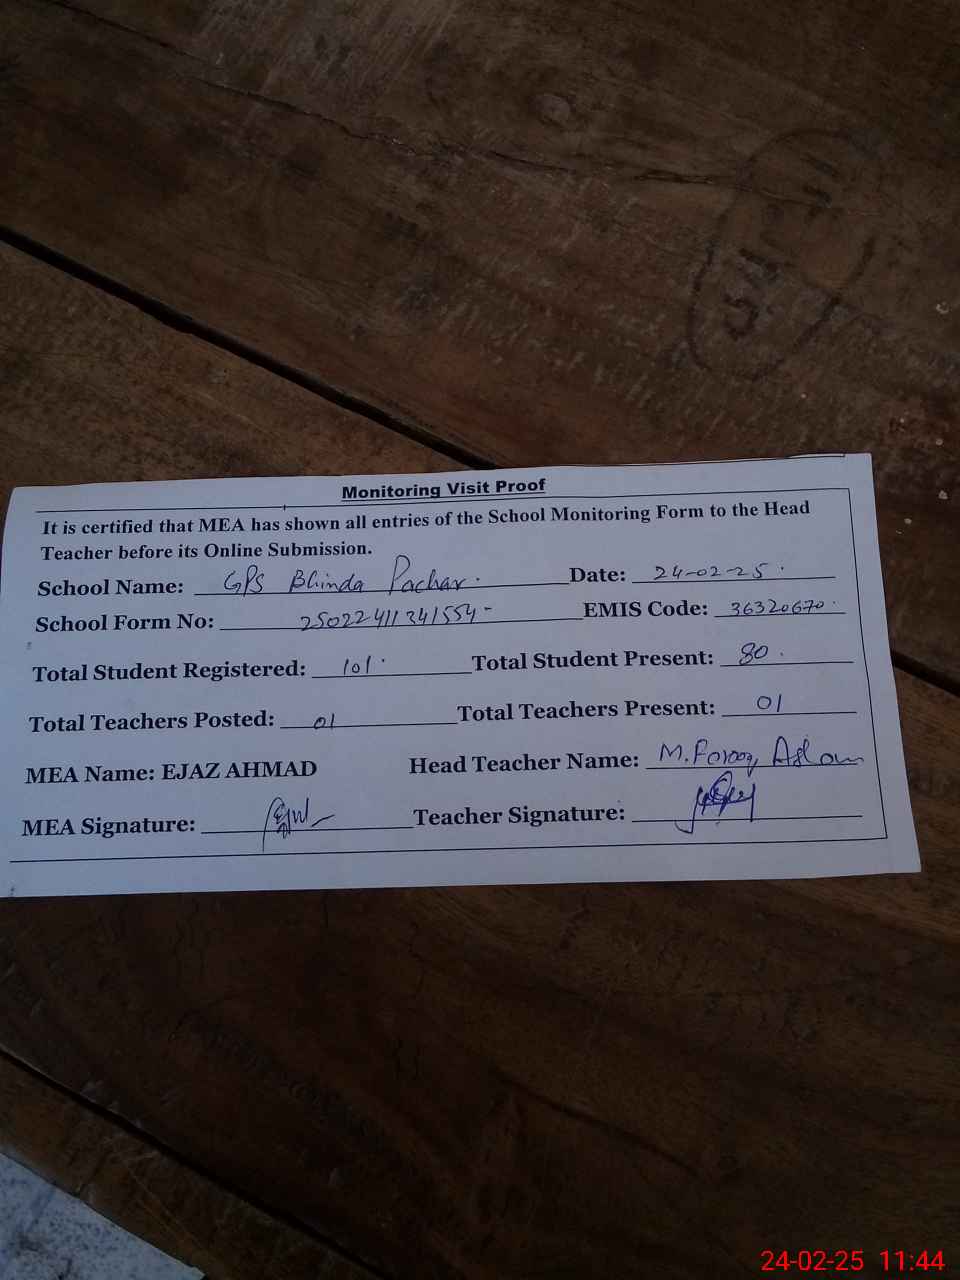 Monitoring Visit Proof
It is certified that MEA has shown all entries of the School Monitoring Form to the Head
Teacher before its Online Submission.
School Name: GPS Bhinda Pachar. Date: 24-02-25.
School Form No: 25022411341554- EMIS Code: 36320670.
Total Student Registered: 101. Total Student Present: 80.
Total Teachers Posted: 01 Total Teachers Present: 01
MEA Name: EJAZ AHMAD Head Teacher Name: M. Farooq Aslam
MEA Signature: Teacher Signature:
24-02-25 11:44